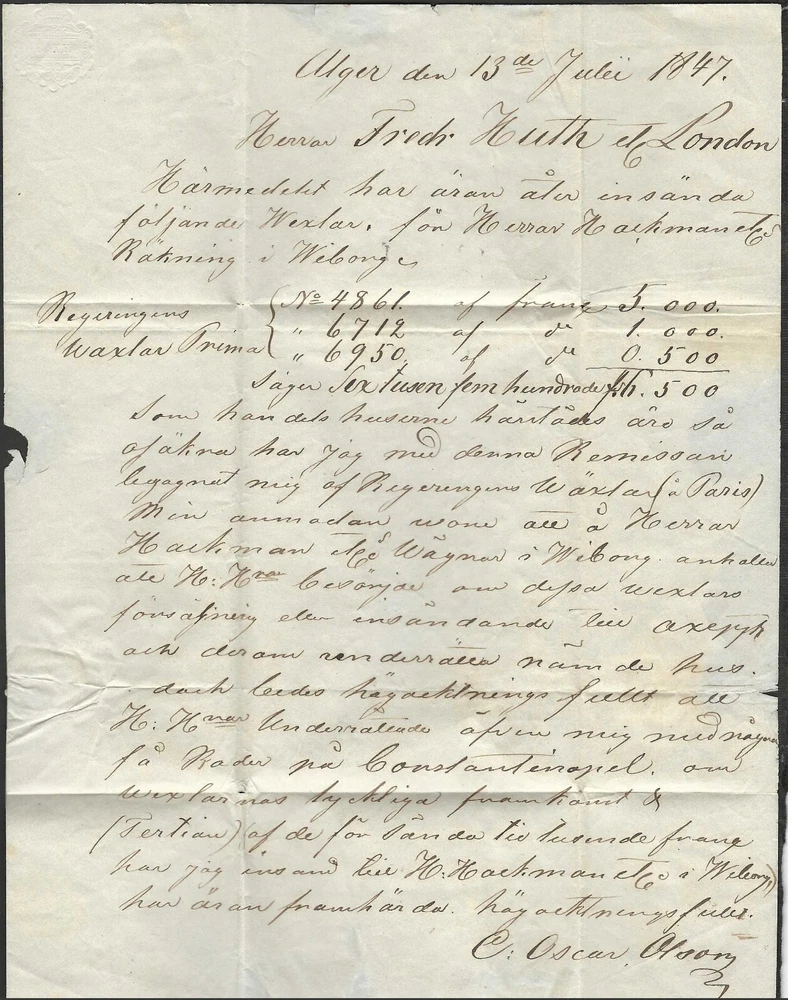 Alger den 13de Julii 1847.
Herrar Fredr Huth etc London
Härmedelst har äran åter insända
följande Wexlar, för Herrar Hackman etCo
Räkning i Wiborg
Regeringens
Wäxlar Prima
No 4861. af frang 5.000.
" 6712 af do 1.000.
" 6950. af do 0.500
Säger Sextusen fem hundrade f 6.500
Som handels huserne härstädes äro så
osäkra har jag med denna Remissan
begagnat mig af Regeringens Wäxlar (å Paris)
Min anmodan wore att å Herrar
Hackman etCo Wägnar i Wiborg. anhålla
att H: Hrar besörja om dessa wexlars
försäljning eller insändande till axept
och derom underrätta nämde hus.
dock bedes högacktnings fullt att
H: Hrar Underrättade äfven mig med några
få Rader på Constantinopel. om
wexlarnas lyckliga framkomst &
(Tertian) af de för sända tio tusende frang
har jag insänd till H: Hackman etCo i Wiborg)
har äran framhärda. högacktningsfullt.
C: Oscar Olsony